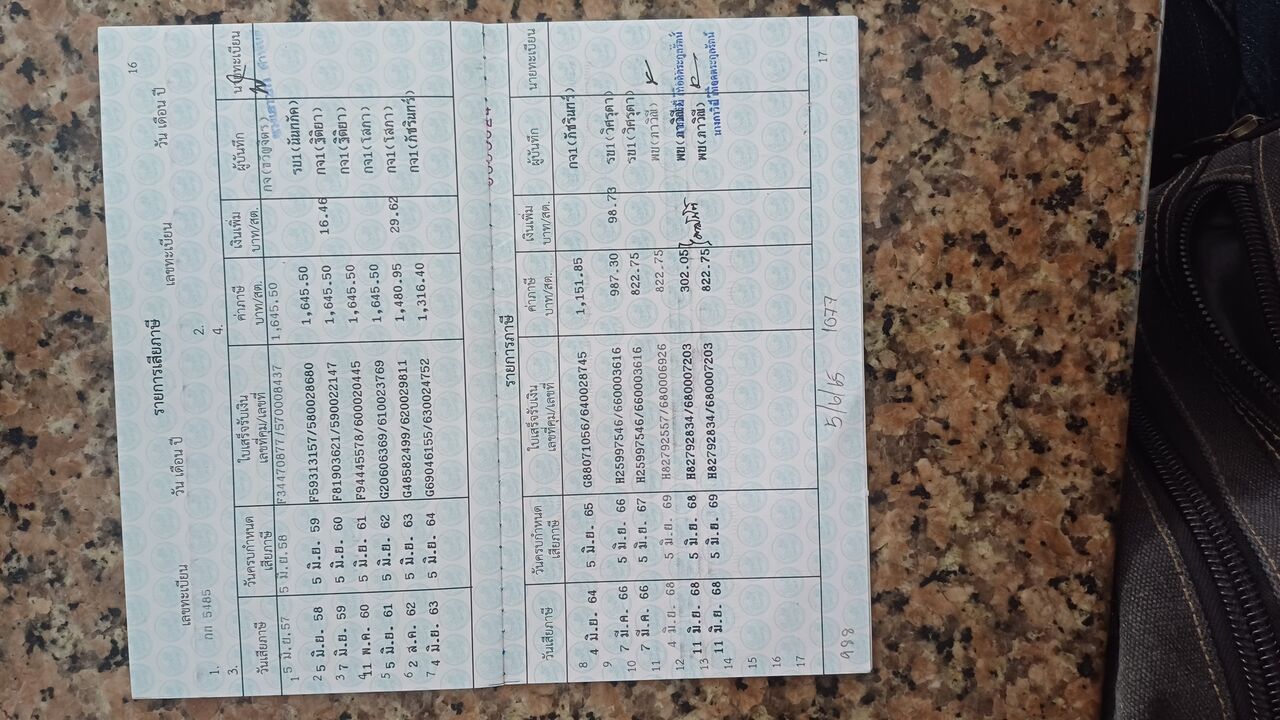 16
รายการเสียภาษี
เลขทะเบียน วัน เดือน ปี เลขทะเบียน วัน เดือน ปี
1. กก 5485 2.
3. 4.
วันเสียภาษี วันครบกำหนดเสียภาษี ใบเสร็จรับเงิน เลขที่คุม/เลขที่ ค่าภาษี บาท/สต. เงินเพิ่ม บาท/สต. ผู้บันทึก นายทะเบียน
1 5 มิ.ย.57 5 มิ.ย.58 F34470877/570008437 1,645.50
2 5 มิ.ย. 58 5 มิ.ย. 59 F59313157/580028680 1,645.50 รบ1(นันทภัค)
3 7 มิ.ย. 59 5 มิ.ย. 60 F81903621/590022147 1,645.50 16.46 กจ1(ฐิติยา)
4 11 พ.ค. 60 5 มิ.ย. 61 F94445578/600020445 1,645.50 กจ1(ฐิติยา)
5 5 มิ.ย. 61 5 มิ.ย. 62 G20606369/610023769 1,645.50 กจ1(โสภา)
6 2 ส.ค. 62 5 มิ.ย. 63 G48582499/620029811 1,480.95 29.62 กจ1(โสภา)
7 4 มิ.ย. 63 5 มิ.ย. 64 G69046155/630024752 1,316.40 กจ1(ภัชรินทร์)
รายการภาษี
วันเสียภาษี วันครบกำหนดเสียภาษี ใบเสร็จรับเงิน เลขที่คุม/เลขที่ ค่าภาษี บาท/สต. เงินเพิ่ม บาท/สต. ผู้บันทึก นายทะเบียน
8 4 มิ.ย. 64 5 มิ.ย. 65 G88071056/640028745 1,151.85 กจ1(ภัชรินทร์)
9 7 มี.ค. 66 5 มิ.ย. 66 H25997546/660003616 987.30 98.73 รบ1(วิศรุตา)
10 7 มี.ค. 66 5 มิ.ย. 67 H25997546/660003616 822.75 รบ1(วิศรุตา)
11 4 มิ.ย. 68 5 มิ.ย. 69 H82792557/680006926 822.75 พบ(ภาวิณี)
12 11 มิ.ย. 68 5 มิ.ย. 68 H82792834/680007203 302.05 พบ(ภาวิณี)
13 11 มิ.ย. 68 5 มิ.ย. 69 H82792834/680007203 822.75 พบ(ภาวิณี)
14
15
16
17
998 5/6/65 1077 17